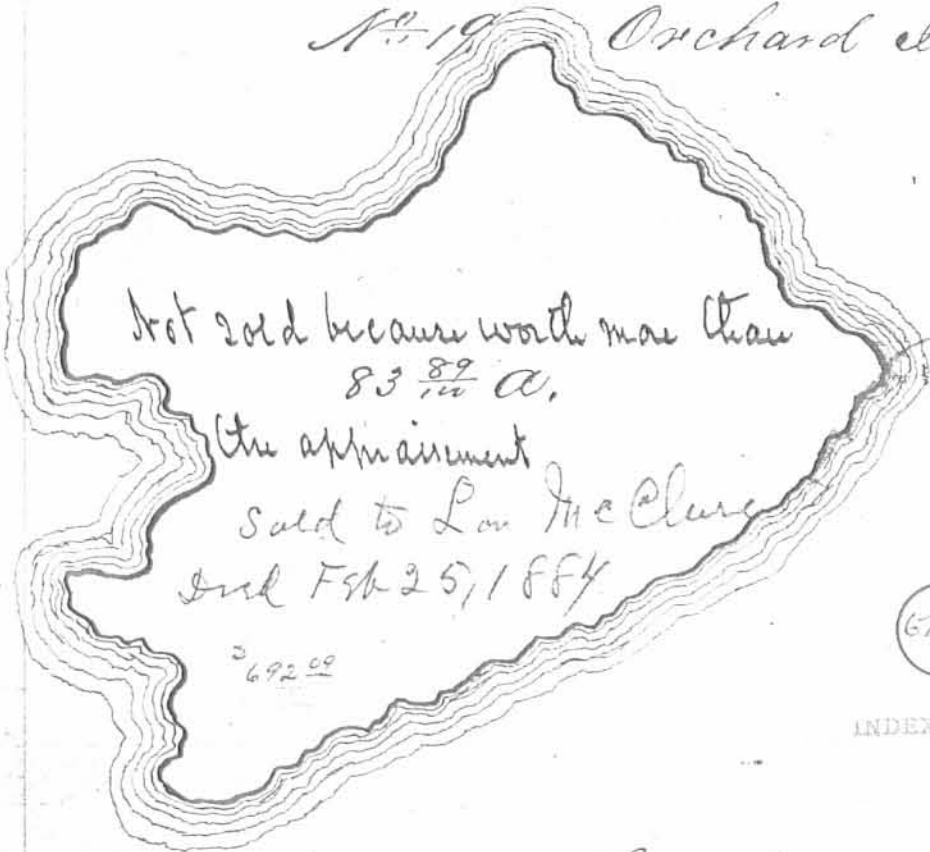 No 19 Orchard
Not sold because worth more than
83 89/100 a.
the appraisement
Sold to Lou McClure
Deed Feb 25, 1884
692 00
INDEX